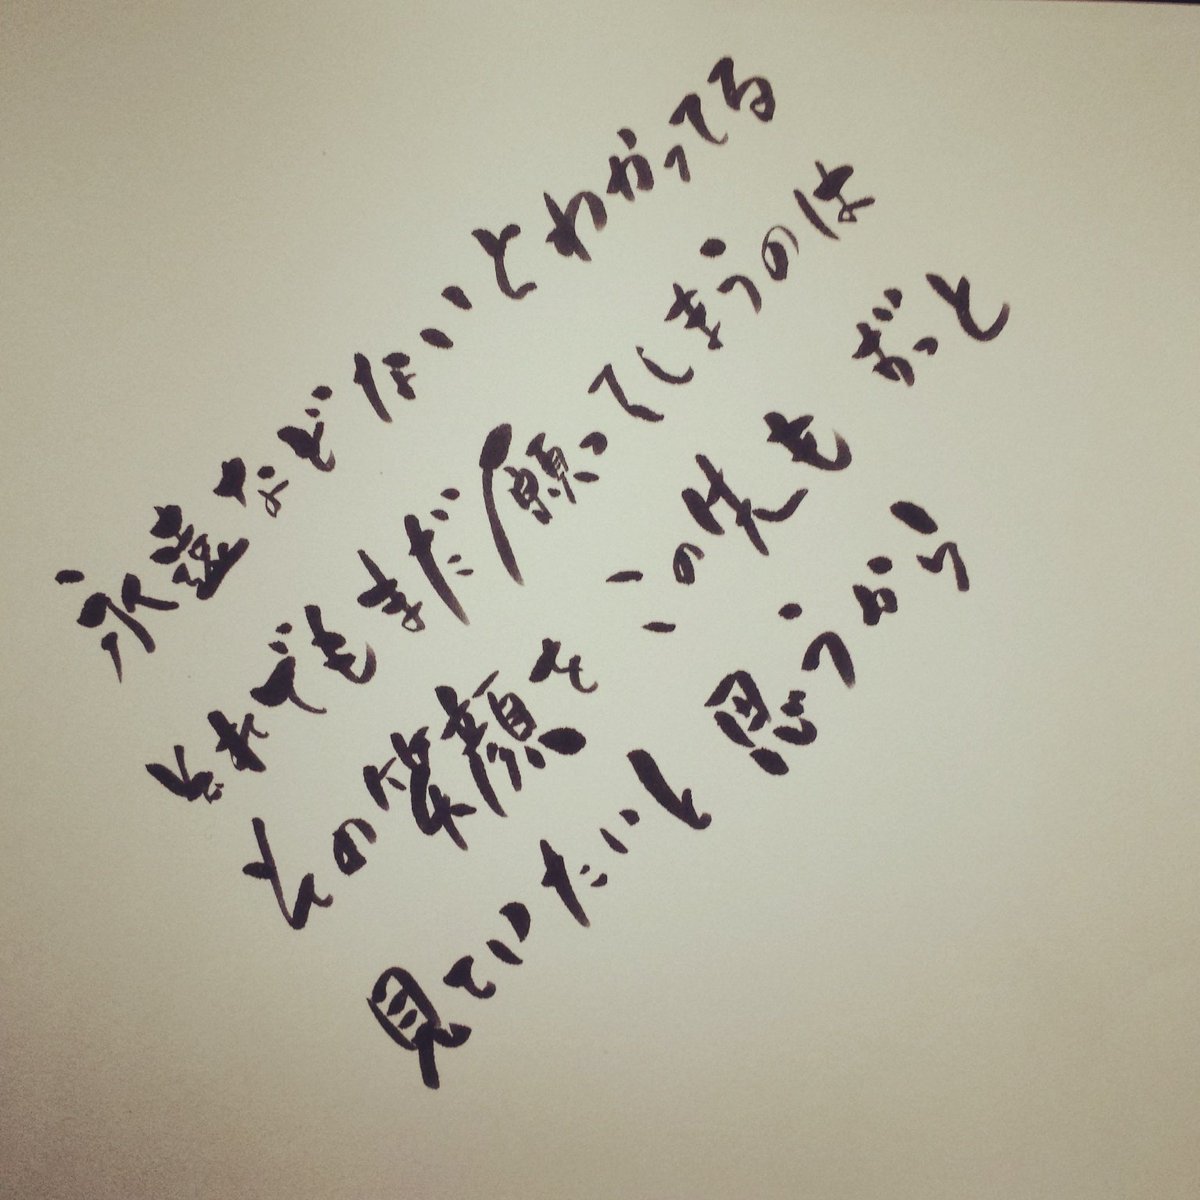 永遠などないとわかってる
それでもまだ願ってしまうのは
その笑顔をこの先もずっと
見ていたいと思うから